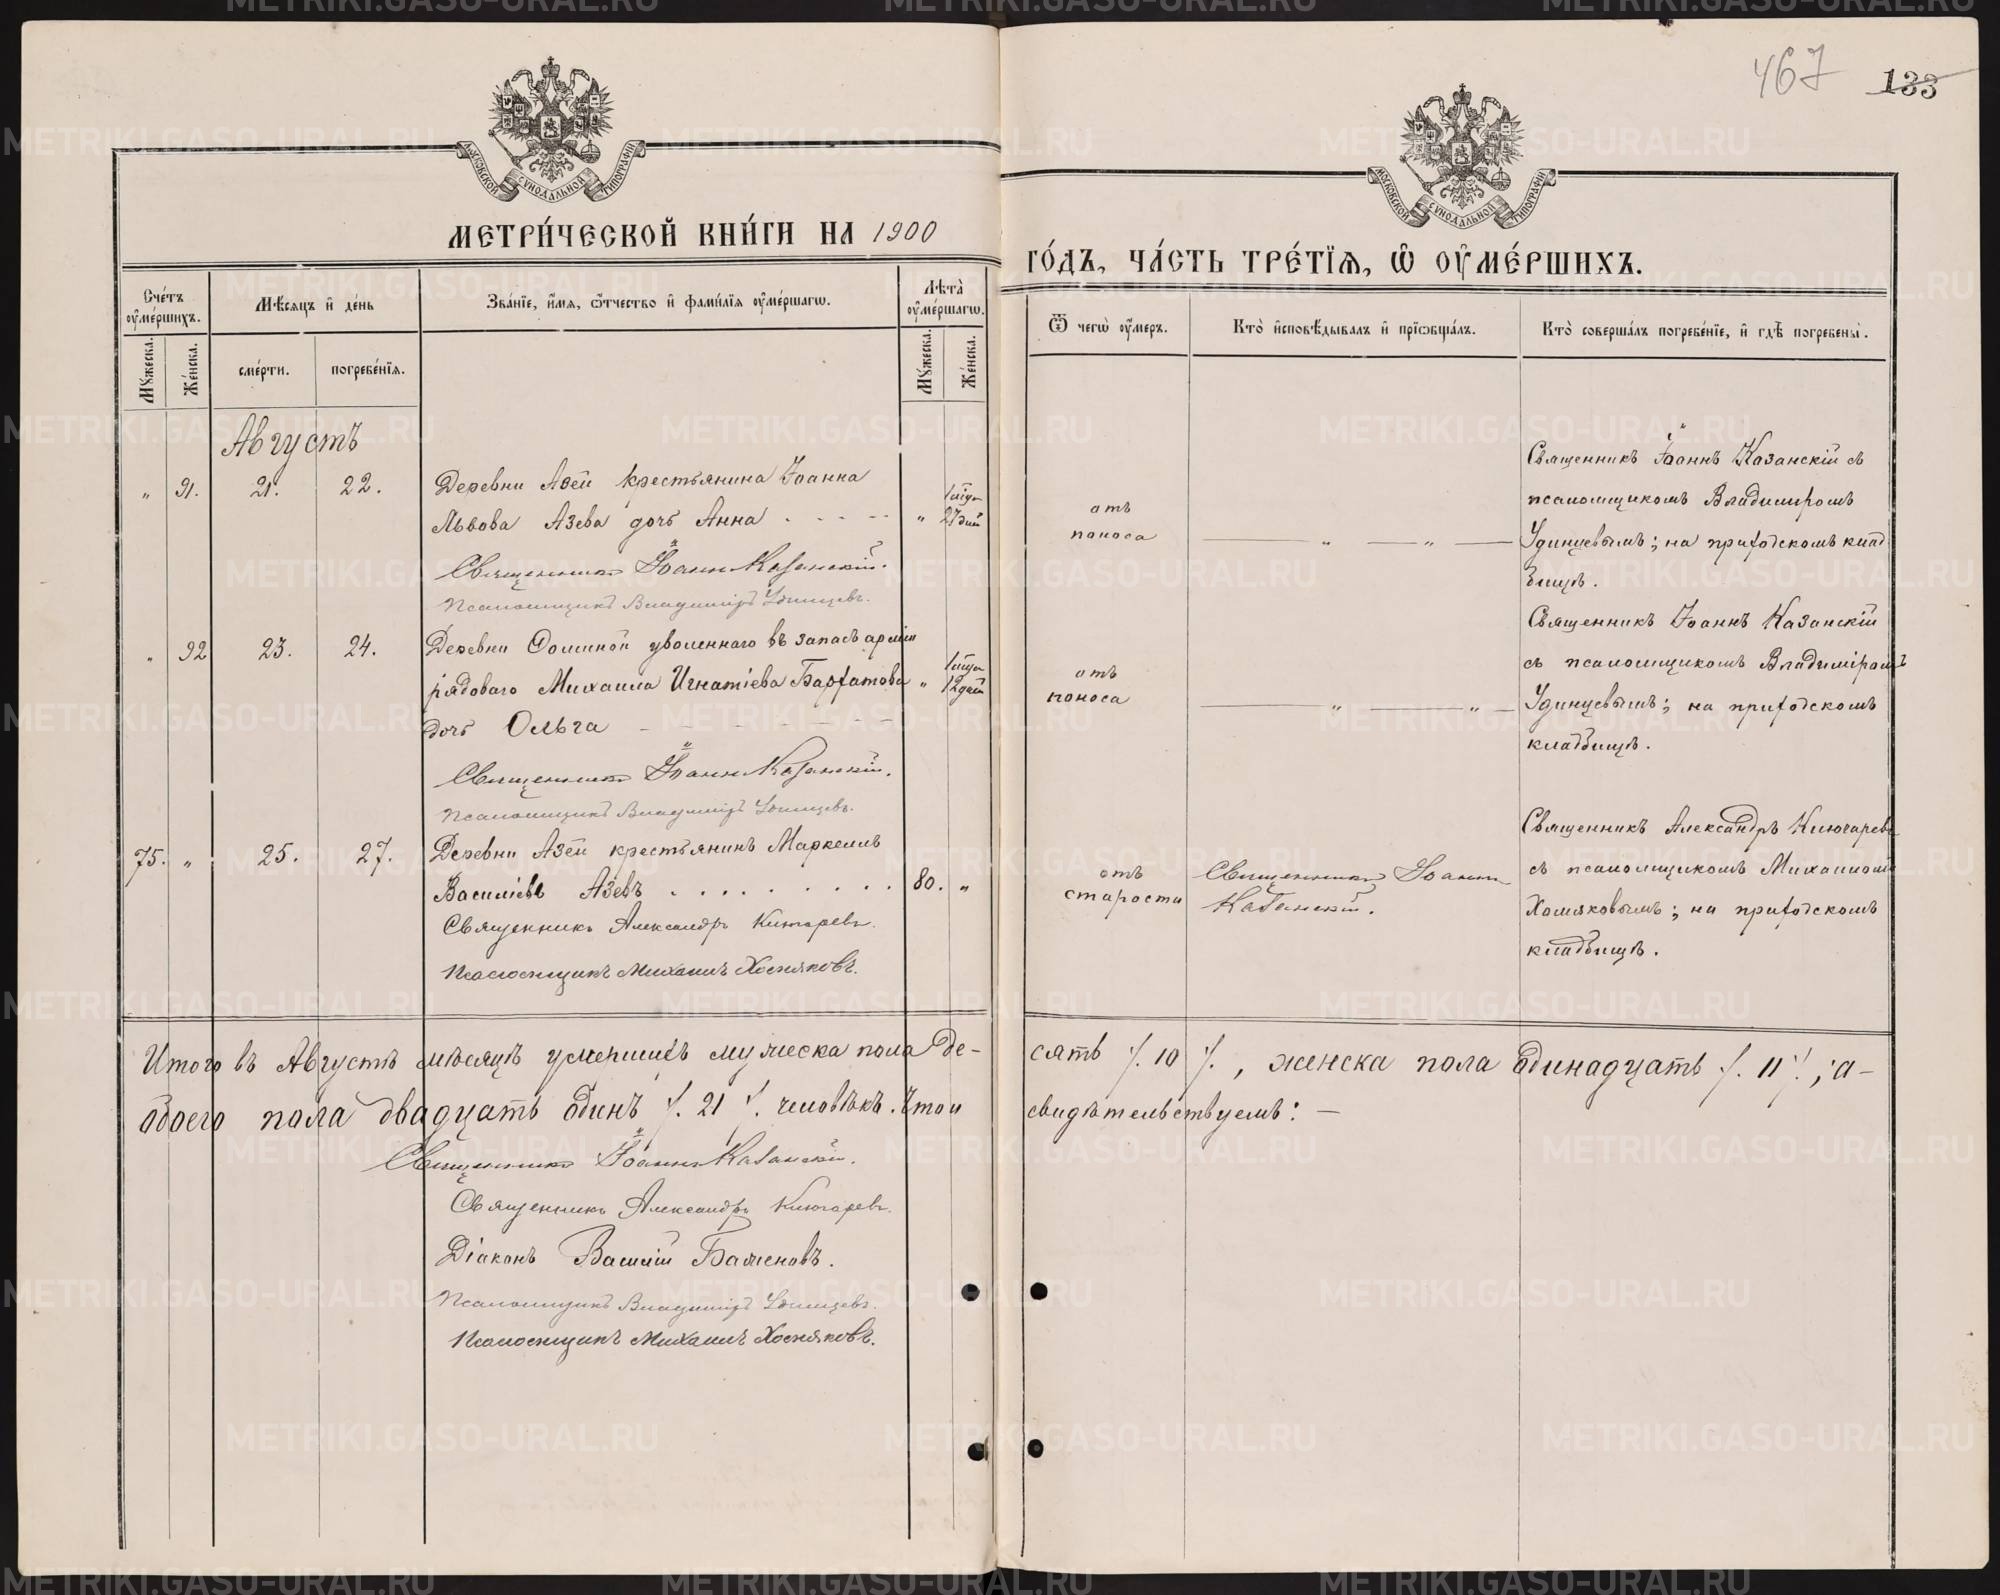 467 133
МОСКОВСКОЙ СУНОДАЛЬНОЙ ТИПОГРАФІИ
МОСКОВСКОЙ СУНОДАЛЬНОЙ ТИПОГРАФІИ
МЕТРИ́ЧЕСКОЙ КНИ́ГИ НА 1900
ГО́ДЪ, ЧА́СТЬ ТРЕ́ТІѦ, Ѡ҆ ОУ҆МЕ́РШИХЪ.
Сче́тъ оу҆ме́ршихъ.
Мѣсяцъ и҆ де́нь
Зва́нїе, и҆́мя, ѿтчество и҆ фами́лїя оу҆ме́ршагѡ.
Лѣта̀ оу҆ме́ршагѡ.
Мꙋ́жеска.
Же́нска.
сме́рти.
погребе́нїя.
Мꙋ́жеска.
Же́нска.
Ѿ чегѡ̀ оу҆́меръ.
Кто̀ и҆сповѣ́дывалъ и҆ прїѻбща́лъ.
Кто̀ соверша́лъ погребе́нїе, и҆ гдѣ̀ погребены̀.
Августъ
" 91. 21. 22. Деревни Азей крестьянина Іоанна
Львова Азева дочь Анна . - - - - " 1 мѣсц. 27 дней
Священникъ Іоаннъ Казанскій.
Псаломщикъ Владиміръ Удинцевъ.
отъ
поноса
— " — " —
Священникъ Іоаннъ Казанскій съ
псаломщикомъ Владимиромъ
Удинцевымъ; на приходскомъ клад
бищѣ.
" 92 23. 24. Деревни уволеннаго въ запасъ арміи
рядоваго Михаила Игнатіева Бархатова " 1 мѣсц. 12 дней
дочь Ольга - - - - - - -
Священникъ Іоаннъ Казанскій.
Псаломщикъ Владиміръ Удинцевъ.
отъ
поноса
— " — " —
Священникъ Іоаннъ Казанскій
съ псаломщикомъ Владиміромъ
Удинцевымъ; на приходскомъ
кладбищѣ.
75. " 25. 27. Деревни Азей крестьянинъ Маркеллъ
Василіевъ Азевъ . . . . . . . . 80. "
Священникъ Александръ Ключаревъ.
Псаломщикъ Михаилъ Хомяковъ.
отъ
старости
Священникъ Іоаннъ
Казанскій.
Священникъ Александръ Ключаревъ
съ псаломщикомъ Михаиломъ
Хомяковымъ; на приходскомъ
кладбищѣ.
Итого въ Августѣ мѣсяцѣ умершихъ мужеска пола де-
сять /. 10 /. , женска пола одинадцать /. 11 /. ; а-
обоего пола двадцать одинъ /. 21 /. человѣкъ. Что и
свидѣтельствуемъ: —
Священникъ Іоаннъ Казанскій.
Священникъ Александръ Ключаревъ.
Діаконъ Василій Баженовъ.
Псаломщикъ Владиміръ Удинцевъ.
Псаломщикъ Михаилъ Хомяковъ.
METRIKI.GASO-URAL.RU